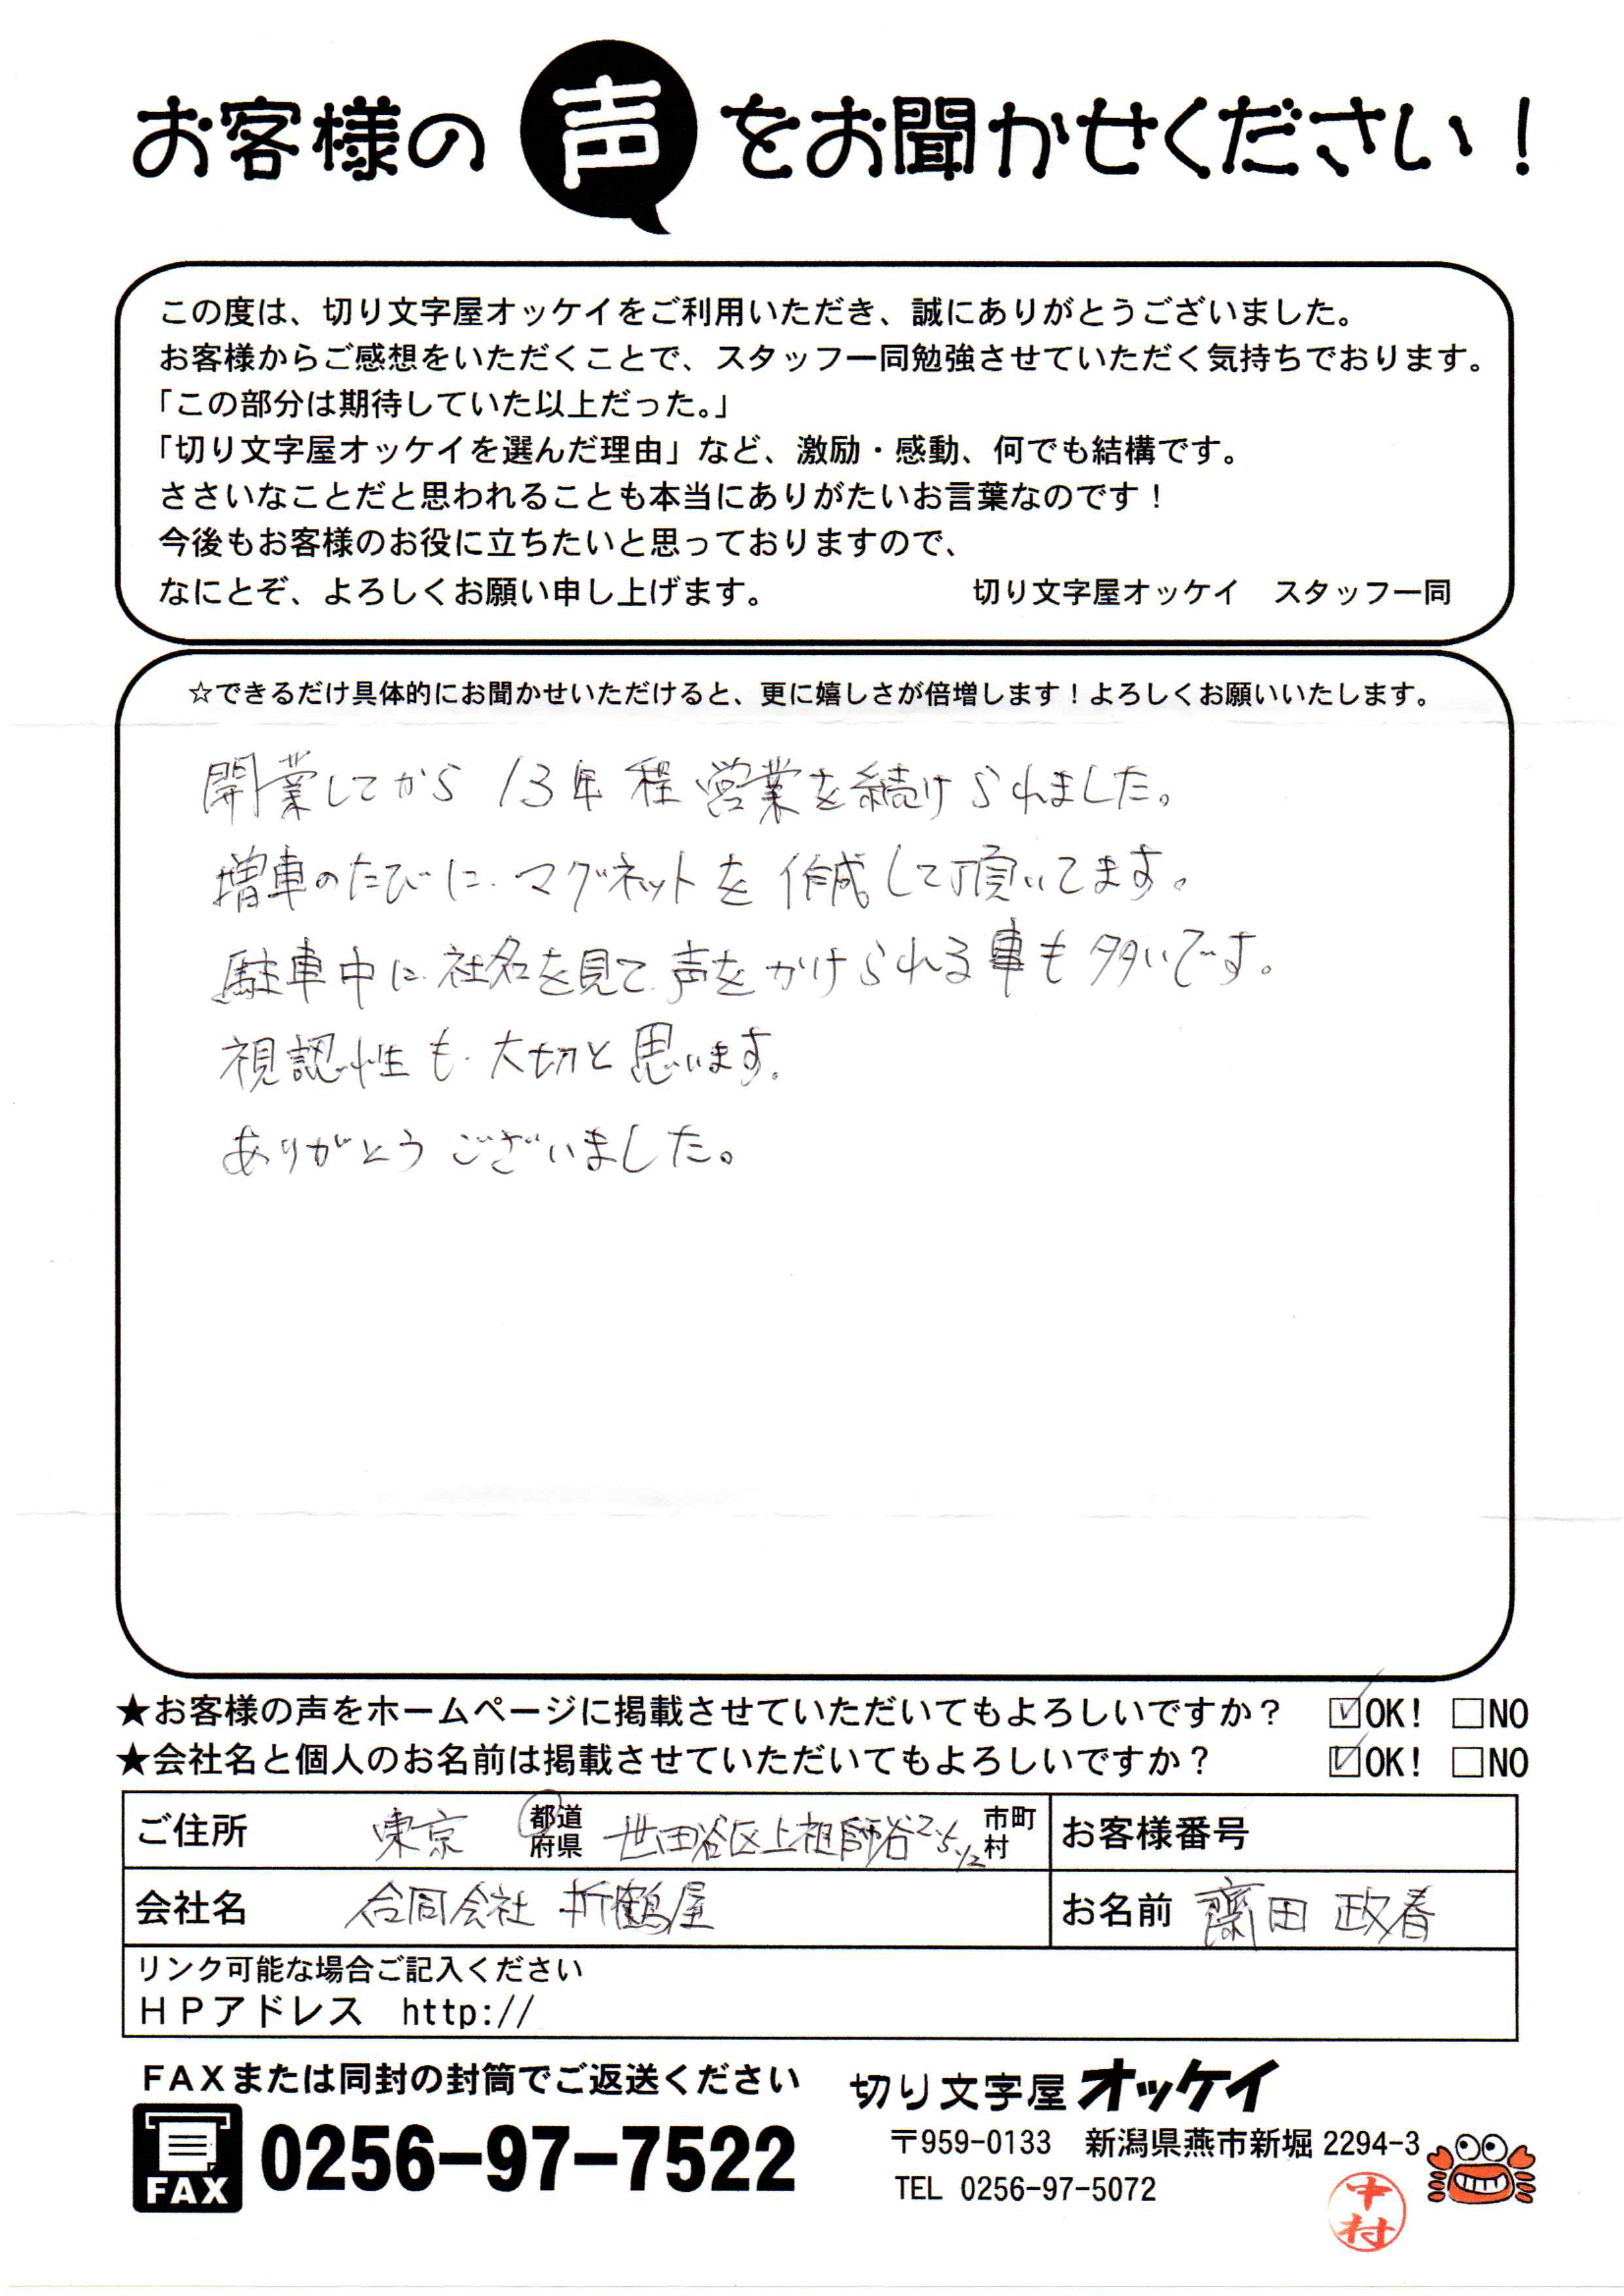 お客様の声をお聞かせください！
この度は、切り文字屋オッケイをご利用いただき、誠にありがとうございました。
お客様からご感想をいただくことで、スタッフ一同勉強させていただく気持ちでおります。
「この部分は期待していた以上だった。」
「切り文字屋オッケイを選んだ理由」など、激励・感動、何でも結構です。
ささいなことだと思われることも本当にありがたいお言葉なのです！
今後もお客様のお役に立ちたいと思っておりますので、
なにとぞ、よろしくお願い申し上げます。　切り文字屋オッケイ　スタッフ一同
☆できるだけ具体的にお聞かせいただけると、更に嬉しさが倍増します！よろしくお願いいたします。
開業してから 13年程営業を続けられました。
増車のたびに、マグネットを作成して頂いてます。
駐車中に、社名を見て、声をかけられる事も多いです。
視認性も、大切と思います。
ありがとうございました。
★お客様の声をホームページに掲載させていただいてもよろしいですか？ ☑OK! □NO
★会社名と個人のお名前は掲載させていただいてもよろしいですか？ ☑OK! □NO
ご住所 東京 都道府県 世田谷区上祖師谷2-5-1/2 市町村 お客様番号
会社名 合同会社 折鶴屋 お名前 齋田 政春
リンク可能な場合ご記入ください
ＨＰアドレス http://
ＦＡＸまたは同封の封筒でご返送ください
FAX 0256-97-7522
切り文字屋オッケイ
〒959-0133 新潟県燕市新堀 2294-3
TEL 0256-97-5072
中村